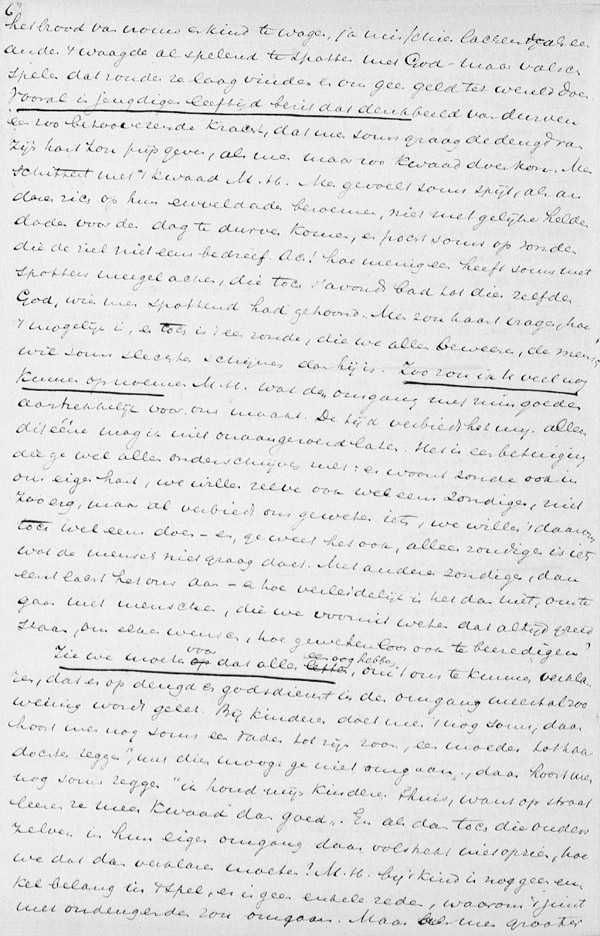 6
het brood van vrouw en kind te wagen, ja misschien lachend als een
ander 't waagde al spelend te spotten met God - maar valsch
spelen dat zouden ze laag vinden en om geen geld ter wereld doen.
Vooral in jeugdigen leeftijd bezit dat denkbeeld van durven
een zoo betooverende kracht, dat men soms graag de deugd van
zijn hart zou prijs geven, als men maar zoo kwaad doen kon. Men
schittert met 't kwaad M. H. Men gevoelt soms spijt, als an
deren zich op hun euveldaden beroemen, niet met gelijke helden
daden voor den dag te durven komen, en pocht soms op zonden
die de ziel niet eens bedreef. Ach! hoe menigeen heeft soms met
spotters meegelachen, die toch 's avonds bad tot dien zelfden
God, wien men spottend had gehoond. Men zou haast vragen, hoe
't mogelijk is, en toch is 't een zonde, die we allen beweenen, de mensch
wil soms slechter schijnen dan hij is. Zoo zou ik U veel nog
kunnen opnoemen M. H. wat den omgang met min goeden
aantrekkelijk voor ons maakt. De tijd verbiedt het mij. Alleen
dit ééne mag ik niet onaangeroerd laten. Het is een betuiging
die ge wel allen onderschrijven zult: er woont zonde ook in
ons eigen hart, we willen zelve ook wel eens zondigen, niet
zoo erg, maar al verbiedt ons geweten iets, we willen 't daarom
toch wel eens doen - en, ge weet het ook, alleen zondigen is iets
wat de mensch niet graag doet. Met anderen zondigen, dan
eerst lacht het ons aan - en hoe verleidelijk is het dan niet, om te
gaan met menschen, die we vooruit weten dat altijd gereed
staan, om elken wensch, hoe gewetenloos ook te bevredigen?
Zie we moeten op voor dat alles letten een oog hebben, om 't ons te kunnen verkla
ren, dat er op deugd en godsdienst in den omgang meestal zoo
weinig wordt gelet. Bij kinderen doet men 't nog soms, daar
hoort men nog soms een vader tot zijn zoon, een moeder tot haar
dochter zeggen, "met die moogt ge niet omgaan", daar hoort men
nog soms zeggen "ik houd mijn kinderen thuis, want op straat
leeren ze meer kwaad dan goed". En als dan toch die ouders
zelven in hun eigen omgang daar volstrekt niet op zien, hoe
we dat dan verklaren moeten? M. H. bij 't kind is nog geen en
kel belang in 't spel, er is geen enkele reden, waarom 't juist
met ondeugenden zou omgaan. Maar als men grooter